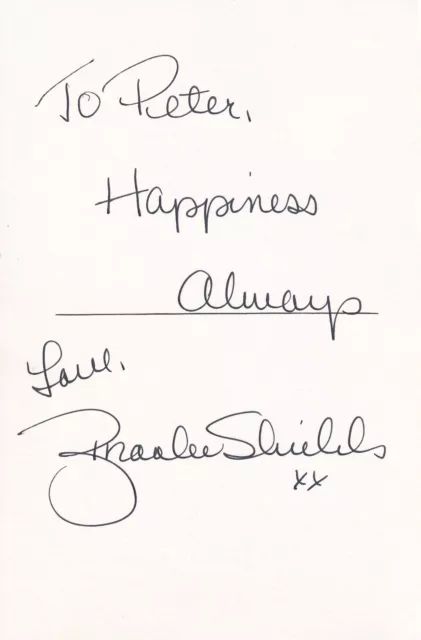 To Pieter,
Happiness
Always
Love,
Brooke Shields
xx